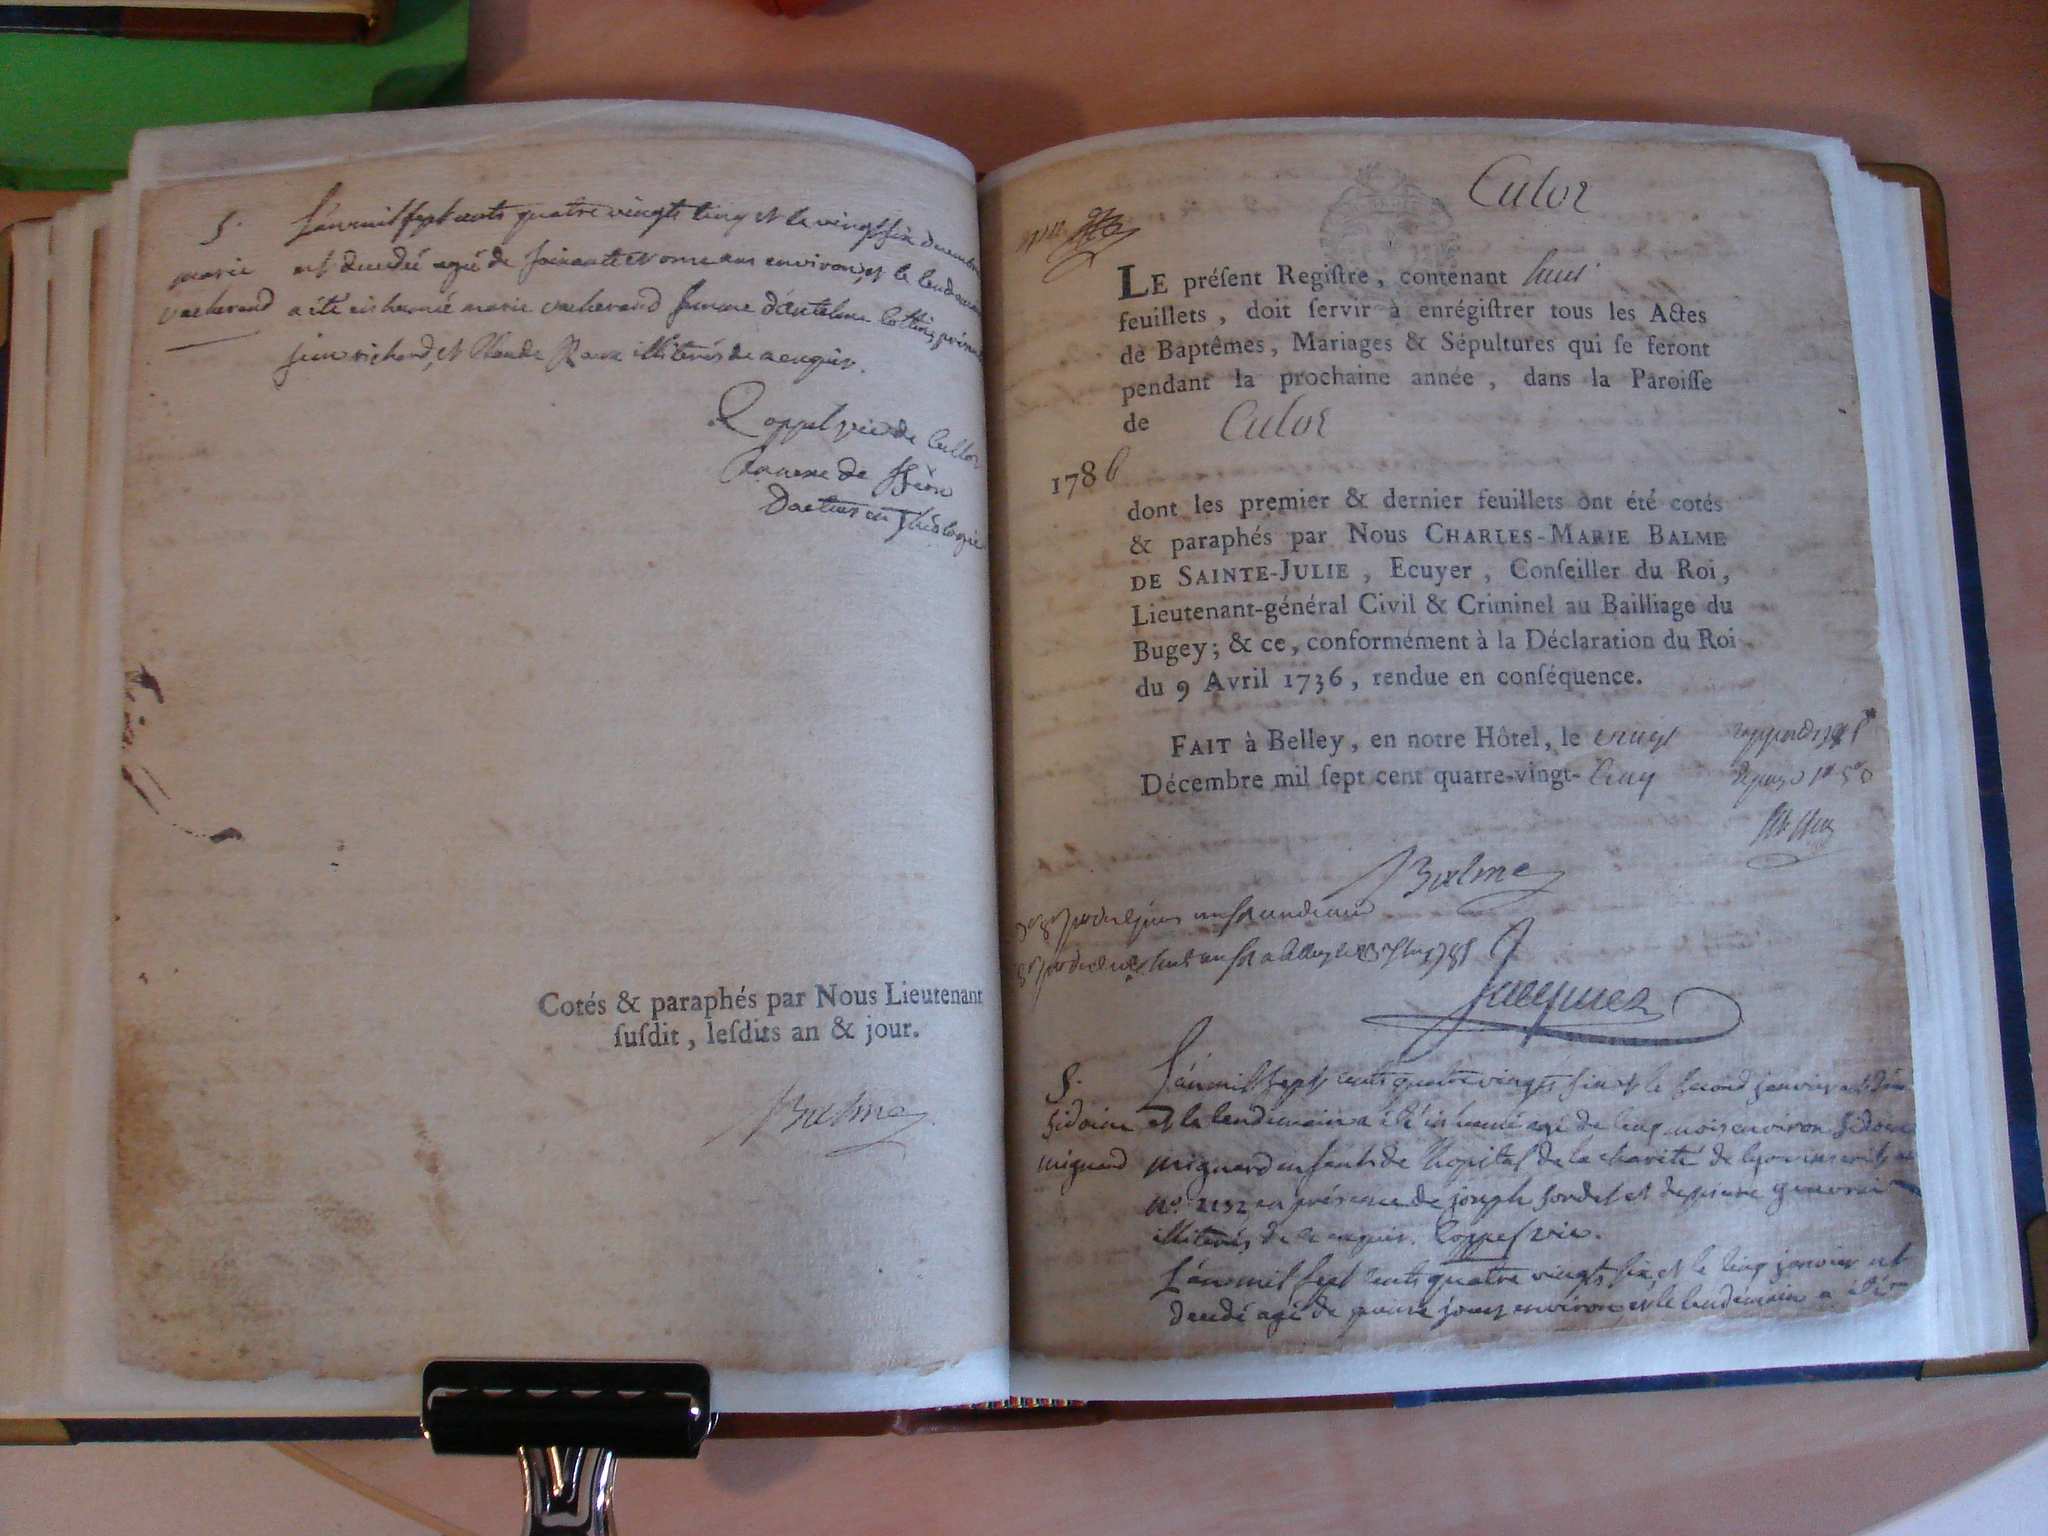 S. L'an mil sept cents quatre vingts cinq et le vingt six decembre
marie est decedée agée de soixante et onze ans environ, et le lendemain
vacherand a été inhumée marie vacherand femme d'antelme cottin, présents
jean richerd, et Claude Roux illiterés de ce enquis.
Coppel vic. de Cullo
annexe de
Docteur en Théologie
Cotés & paraphés par Nous Lieutenant
ſuſdit, leſdits an & jour.
Balme
Culoz
LE préſent Regiſtre, contenant huit
feuillets, doit ſervir à enrégiſtrer tous les Actes
de Baptêmes, Mariages & Sépultures qui ſe feront
pendant la prochaine année, dans la Paroiſſe
de Culoz
1786
dont les premier & dernier feuillets ont été cotés
& paraphés par Nous CHARLES-MARIE BALME
DE SAINTE-JULIE, Ecuyer, Conſeiller du Roi,
Lieutenant-général Civil & Criminel au Bailliage du
Bugey; & ce, conformément à la Déclaration du Roi
du 9 Avril 1736, rendue en conſéquence.
FAIT à Belley, en notre Hôtel, le vingt
Décembre mil ſept cent quatre-vingt-cinq
Balme
Jacquier
S. L'an mil sept cents quatre vingts six et le second janvier est
Sidoine et le lendemain a été inhumé agé de cinq mois environ Sidoine
mignard mignard enfant de l'hopital de la charité de lyon inscrit
No. 2132, en présence de joseph sordet et de pierre
illiterés de ce enquis. Coppel vic.
L'an mil sept cents quatre vingts six, et le cinq janvier est
decedé agé de quinze jours environ et le lendemain a été